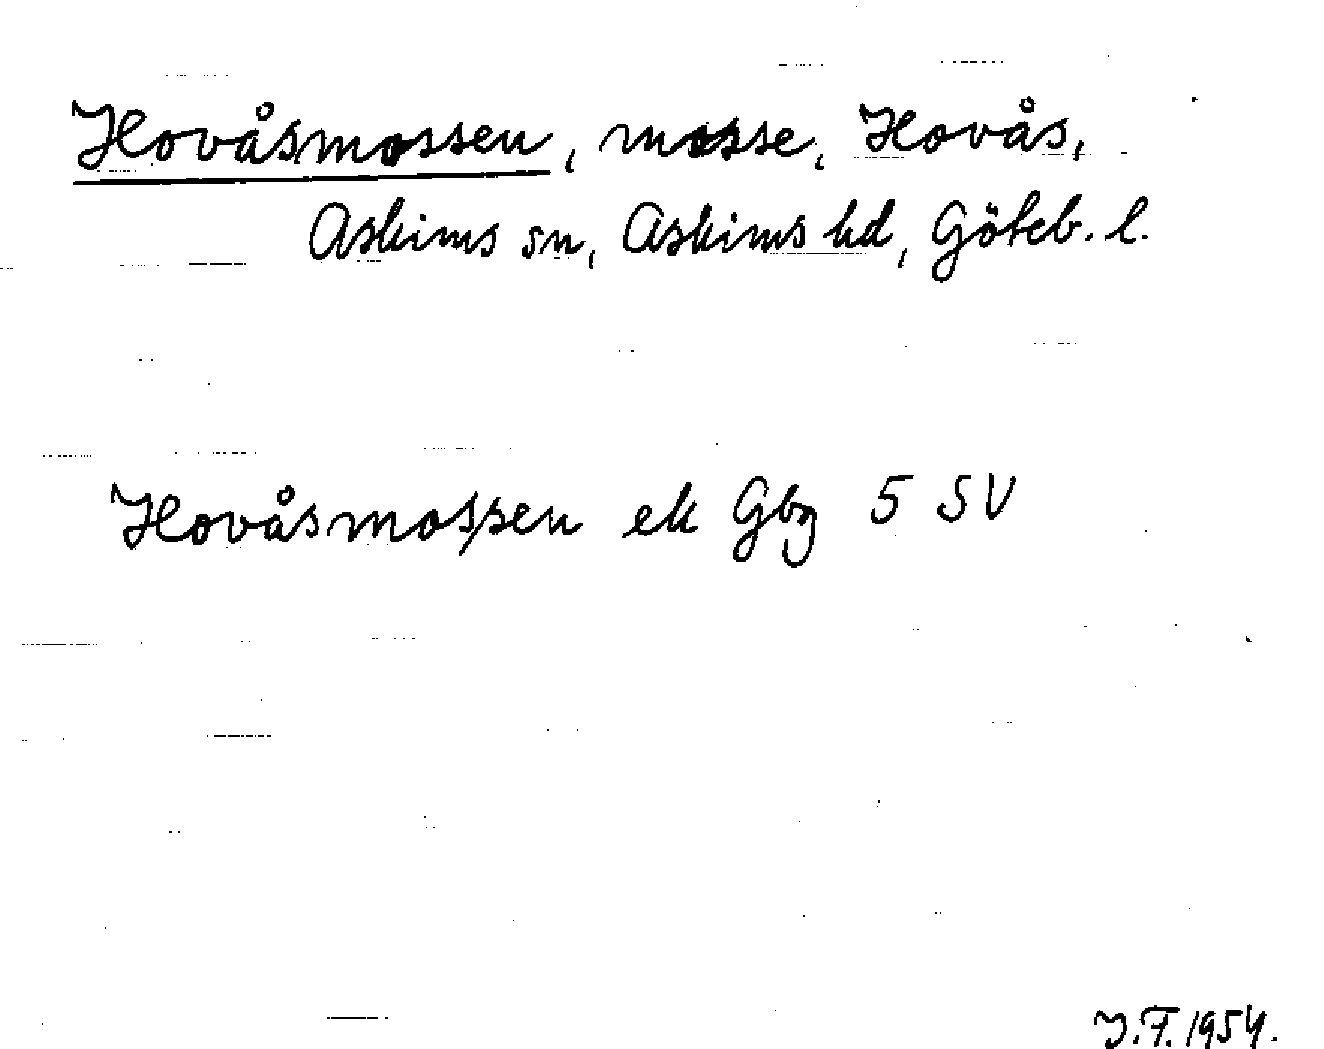 Hovåsmossen, mosse, Hovås,
Askims sn, Askims hd, Göteb. l.
Hovåsmossen ek Gbg 5 SV
J.F. 1954.